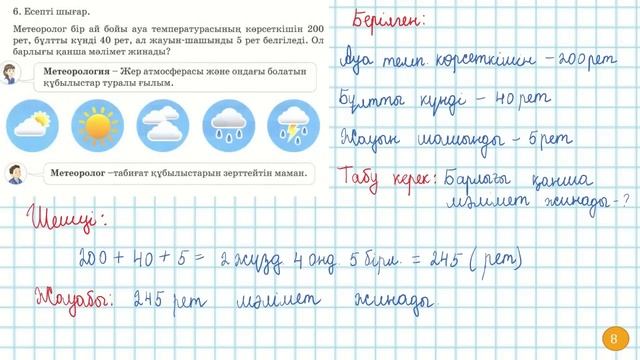 6. Есепті шығар.
Метеоролог бір ай бойы ауа температурасының көрсеткішін 200
рет, бұлтты күнді 40 рет, ал жауын-шашынды 5 рет белгіледі. Ол
барлығы қанша мәлімет жинады?
Метеорология – Жер атмосферасы және ондағы болатын
құбылыстар туралы ғылым.
Метеоролог –табиғат құбылыстарын зерттейтін маман.
Берілген:
Ауа темп. көрсеткішін – 200 рет
Бұлтты күнді – 40 рет
Жауын шашынды – 5 рет
Табу керек: Барлығы қанша
мәлімет жинады - ?
Шешуі:
200 + 40 + 5 = 2 жүзд. 4 онд. 5 бірл. = 245 ( рет)
Жауабы: 245 рет мәлімет жинады.
8